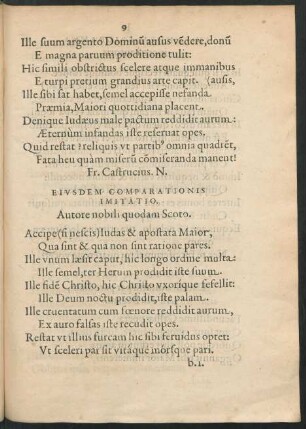 9
Ille suum argento Dominū ausus vēdere, donū
E magna paruum proditione tulit:
Hic simili obstrictus scelere atque immanibus
E turpi pretium grandius arte capit. (ausis,
Ille sibi sat habet, semel accepisse nefanda
Præmia, Maiori quottidiana placent.
Denique Iudæus male pactum reddidit aurum.:
Æternùm infandas iste reseruat opes.
Quid restat? reliquis vt partibꝰ omnia quadrēt,
Fata heu quàm miserū cōmiseranda manent!
Fr. Castrucius. N.
EIVSDEM COMPARATIONIS
IMITATIO.
Autore nobili quodam Scoto.
Accipe (si nescis) Iudas & apostata Maior,
Qua sint & qua non sint ratione pares.
Ille vnum læsit caput, hic longo ordine multa:
Ille semel, ter Herum prodidit iste suum.
Ille fidē Christo, hic Christo vxorique fefellit:
Ille Deum noctu prodidit, iste palam.
Ille cruentatum cum fœnore reddidit aurum,
Ex auro falsas iste recudit opes.
Restat vt illius furcam huc sibi feruidus optet:
Vt sceleri par sit vitaque morsque pari.
b.i.